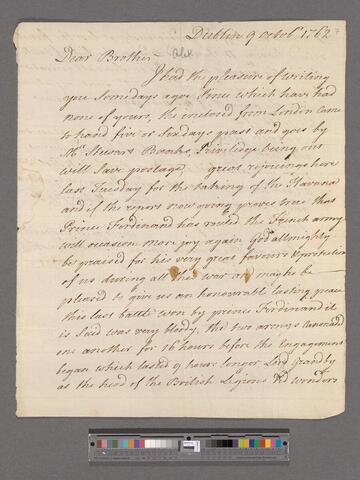 Dublin 9 Octobr 1762
Dear Brother
I had the pleasure of writing
you Somedays agoe Since which have had
none of yours, the inclosed from London came
to hand five or Six days past and goes by
Mr Stewart Priviledge being on it
will Save postage, great rejoycings here
last Tuesday for the taking of the Havana
and if the report now going proves true that
Prince Ferdinand has routed the french army
will occasion more joy again God allmighty
be praised for his very great favours & protection
of us during all this war and may he be
pleased to give us an honourable lasting peace
this last battle won by prince Ferdinand it
is Said was very bloody, the two armys Canonaded
one another for 16 hours before the Engagement
began which lasted 9 hours longer Lord Grandby
at the head of the British Legions did wonders